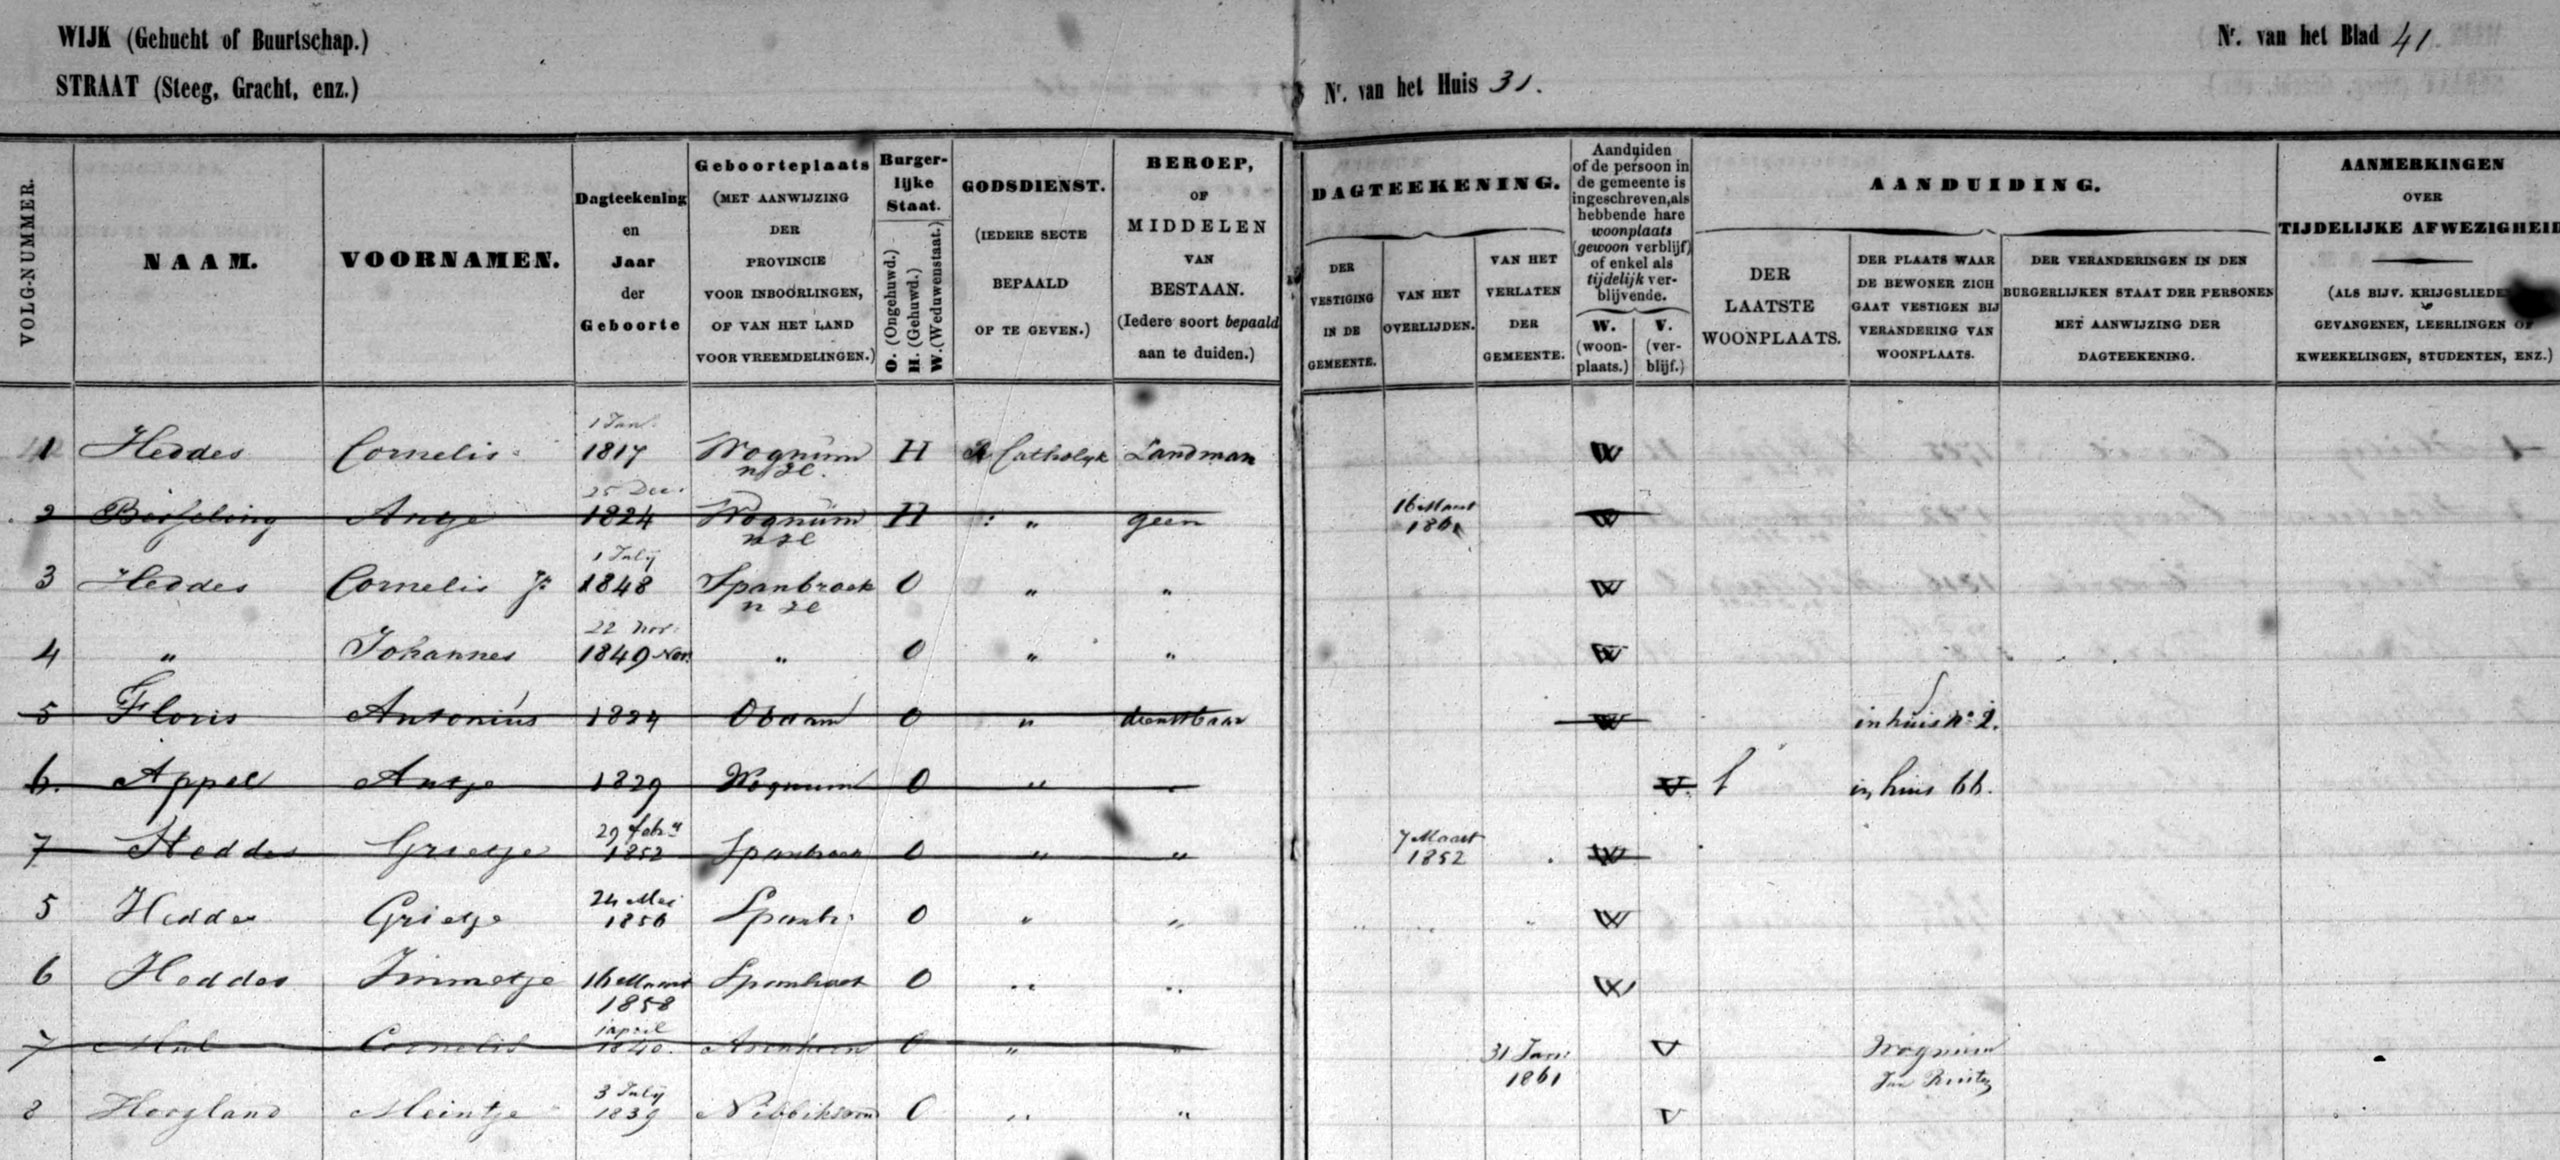 WIJK (Gehucht of Buurtschap.)
STRAAT (Steeg, Gracht, enz.)
Nr. van het Huis 31.
Nr. van het Blad 41.
VOLG-NUMMER.
NAAM.
VOORNAMEN.
Dagteekening
en
Jaar
der
Geboorte
Geboorteplaats
(MET AANWIJZING
DER
PROVINCIE
VOOR INBOORLINGEN,
OF VAN HET LAND
VOOR VREEMDELINGEN.)
Burger-
lijke
Staat.
O. (Ongehuwd.)
H. (Gehuwd.)
W. (Weduwenstaat.)
GODSDIENST.
(IEDERE SECTE
BEPAALD
OP TE GEVEN.)
BEROEP,
OF
MIDDELEN
VAN
BESTAAN.
(Iedere soort bepaald
aan te duiden.)
DAGTEEKENING.
DER
VESTIGING
IN DE
GEMEENTE.
VAN HET
OVERLIJDEN.
VAN HET
VERLATEN
DER
GEMEENTE.
Aanduiden
of de persoon in
de gemeente is
ingeschreven, als
hebbende hare
woonplaats
(gewoon verblijf)
of enkel als
tijdelijk ver-
blijvende.
W.
(woon-
plaats.)
V.
(ver-
blijf.)
AANDUIDING.
DER
LAATSTE
WOONPLAATS.
DER PLAATS WAAR
DE BEWONER ZICH
GAAT VESTIGEN BIJ
VERANDERING VAN
WOONPLAATS.
DER VERANDERINGEN IN DEN
BURGERLIJKEN STAAT DER PERSONEN
MET AANWIJZING DER
DAGTEEKENING.
AANMERKINGEN
OVER
TIJDELIJKE AFWEZIGHEID
(ALS BIJV. KRIJGSLIEDE
GEVANGENEN, LEERLINGEN OF
KWEEKELINGEN, STUDENTEN, ENZ.)
1 Jan.
1 Heddes Cornelis 1817 Wognum H R Catholyk Landman W
n ze.
25 Dec.
2 Antje 1824 Wognum H " geen 16 Maart 1861 W
n ze
1 July
3 Heddes Cornelis Jr 1848 Spanbroek O " " W
n ze
22 Nov.
4 " Johannes 1849 Nov. " O " " W
5 Floris Antonius 1824 Obdam O " dienstbaar W in huis No 2.
6. Appel Antje 1829 Wognum O " " V. in huis 66.
29 Febry
7 Heddes Grietje 1852 Spanbroek O " " 7 Maart 1852 W
24 Mei
5 Heddes Grietje 1856 Spanbr. O " " W
6 Heddes Immetje 16 Maart 1858 Spanbroek O " " W
1 april
7 Cornelis 1840. O " " 31 Jan. 1861 V Wognum
Jan
3 July
8 Hoogland Meintje 1839 Nibbikswoud O " " V